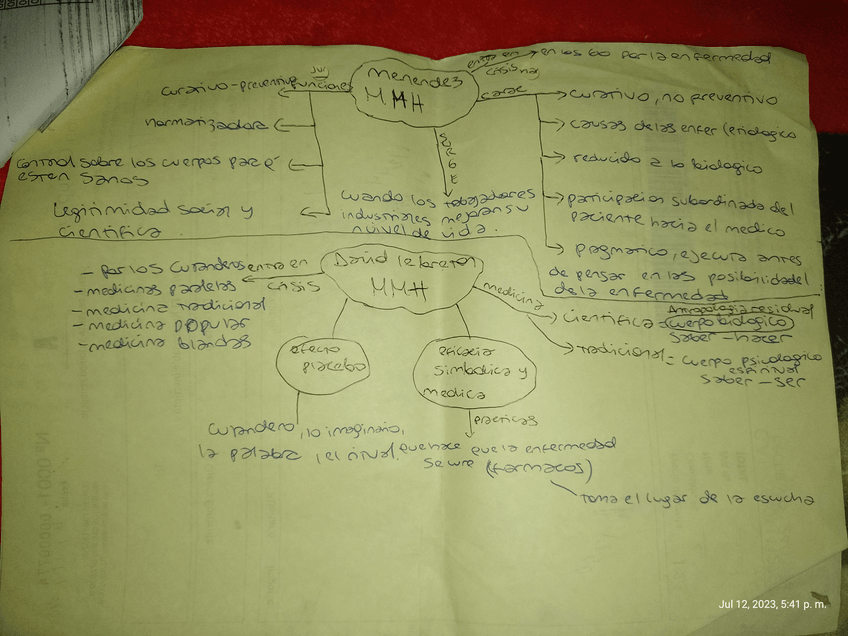 Menendez
MMH
entra en crisis → en los 60 por la enfermedad
funciones
curativo-preventivo
normatizadora
control sobre los cuerpos para q'
esten sanos
Legitimidad social y
cientifica.
SURGE
cuando los trabajadores
industriales mejoran su
nivel de vida.
carac
curativo, no preventivo
causas de las enfer (etiologico
reducido a lo biologico
participacion subordinada del
paciente hacia el medico
pragmatico, ejecuta antes
de pensar en las posibilidades
de la enfermedad
David le breton
MMH
entra en
crisis
- por los curanderos
- medicinas paralelas
- medicina tradicional
- medicina popular
- medicina blandas
medicina
Antropologia residual
cientifica = cuerpo biologico
saber - hacer
Tradicional = cuerpo psicologico
espiritual
saber - ser
efecto
placebo
curandero, lo imaginario,
la palabra, el ritual.
eficacia
simbolica y
medica
practicas
que hace que la enfermedad
se cure (farmacos)
toma el lugar de la escucha
Jul 12, 2023, 5:41 p. m.